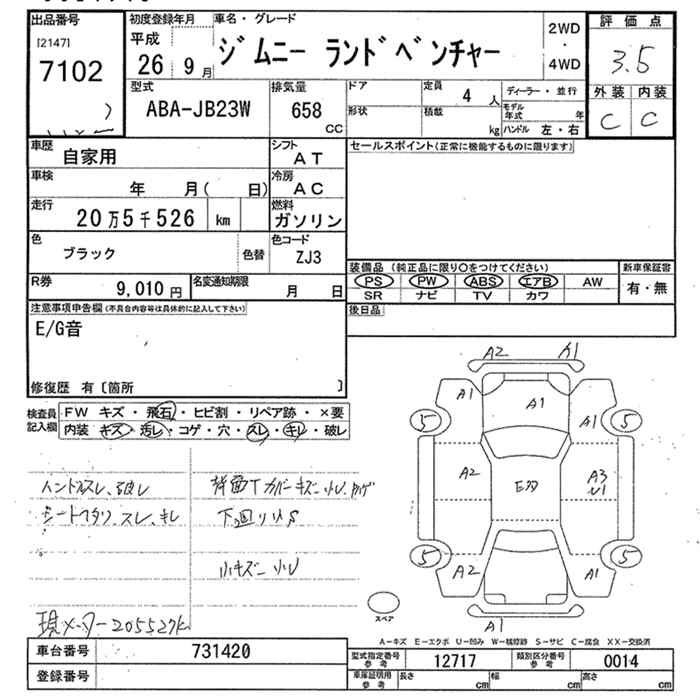 出品番号 初度登録年月 車名・グレード 2WD ・ 4WD 評価点
[2147] 平成
7102 26 9月 ジムニー ランドベンチャー 3.5
型式 排気量 ドア 定員 4 人 ディーラー・並行 外装 内装
ABA-JB23W 658 CC 形状 積載 kg モデル年式 年 C C
ハンドル 左・右
車歴 自家用 シフト AT セールスポイント(正常に機能するものに限ります)
車検 年 月( 日) 冷房 AC
走行 20万5千526 km 燃料 ガソリン
色 ブラック 色替 色コード ZJ3
装備品 (純正品に限り○をつけてください) 新車保証書
R券 9,010円 名変通知期限 月 日 PS PW ABS エアB AW 有・無
SR ナビ TV カワ
注意事項申告欄(不具合内容等は具体的に記入して下さい) 後日品
E/G音
修復歴 有〔箇所 〕
検査員記入欄 FW キズ・飛石・ヒビ割・リペア跡・×要
内装 キズ・汚レ・コゲ・穴・スレ・キレ・破レ
A2 A1
A1 A1 A1
5 5
A2 E多 A3
U1
5 5
A2 A1
A1
ハンドルスレ、破レ
シートヘタリ、スレ、キレ
小キズ
現メーター205527K
スペア
A-キズ E-エクボ U-凹み W-補修跡 S-サビ C-腐食 XX-交換済
車台番号 731420 型式指定番号 参考 12717 類別区分番号 参考 0014
登録番号 車庫証明用 参考 長さ cm 幅 cm 高さ cm